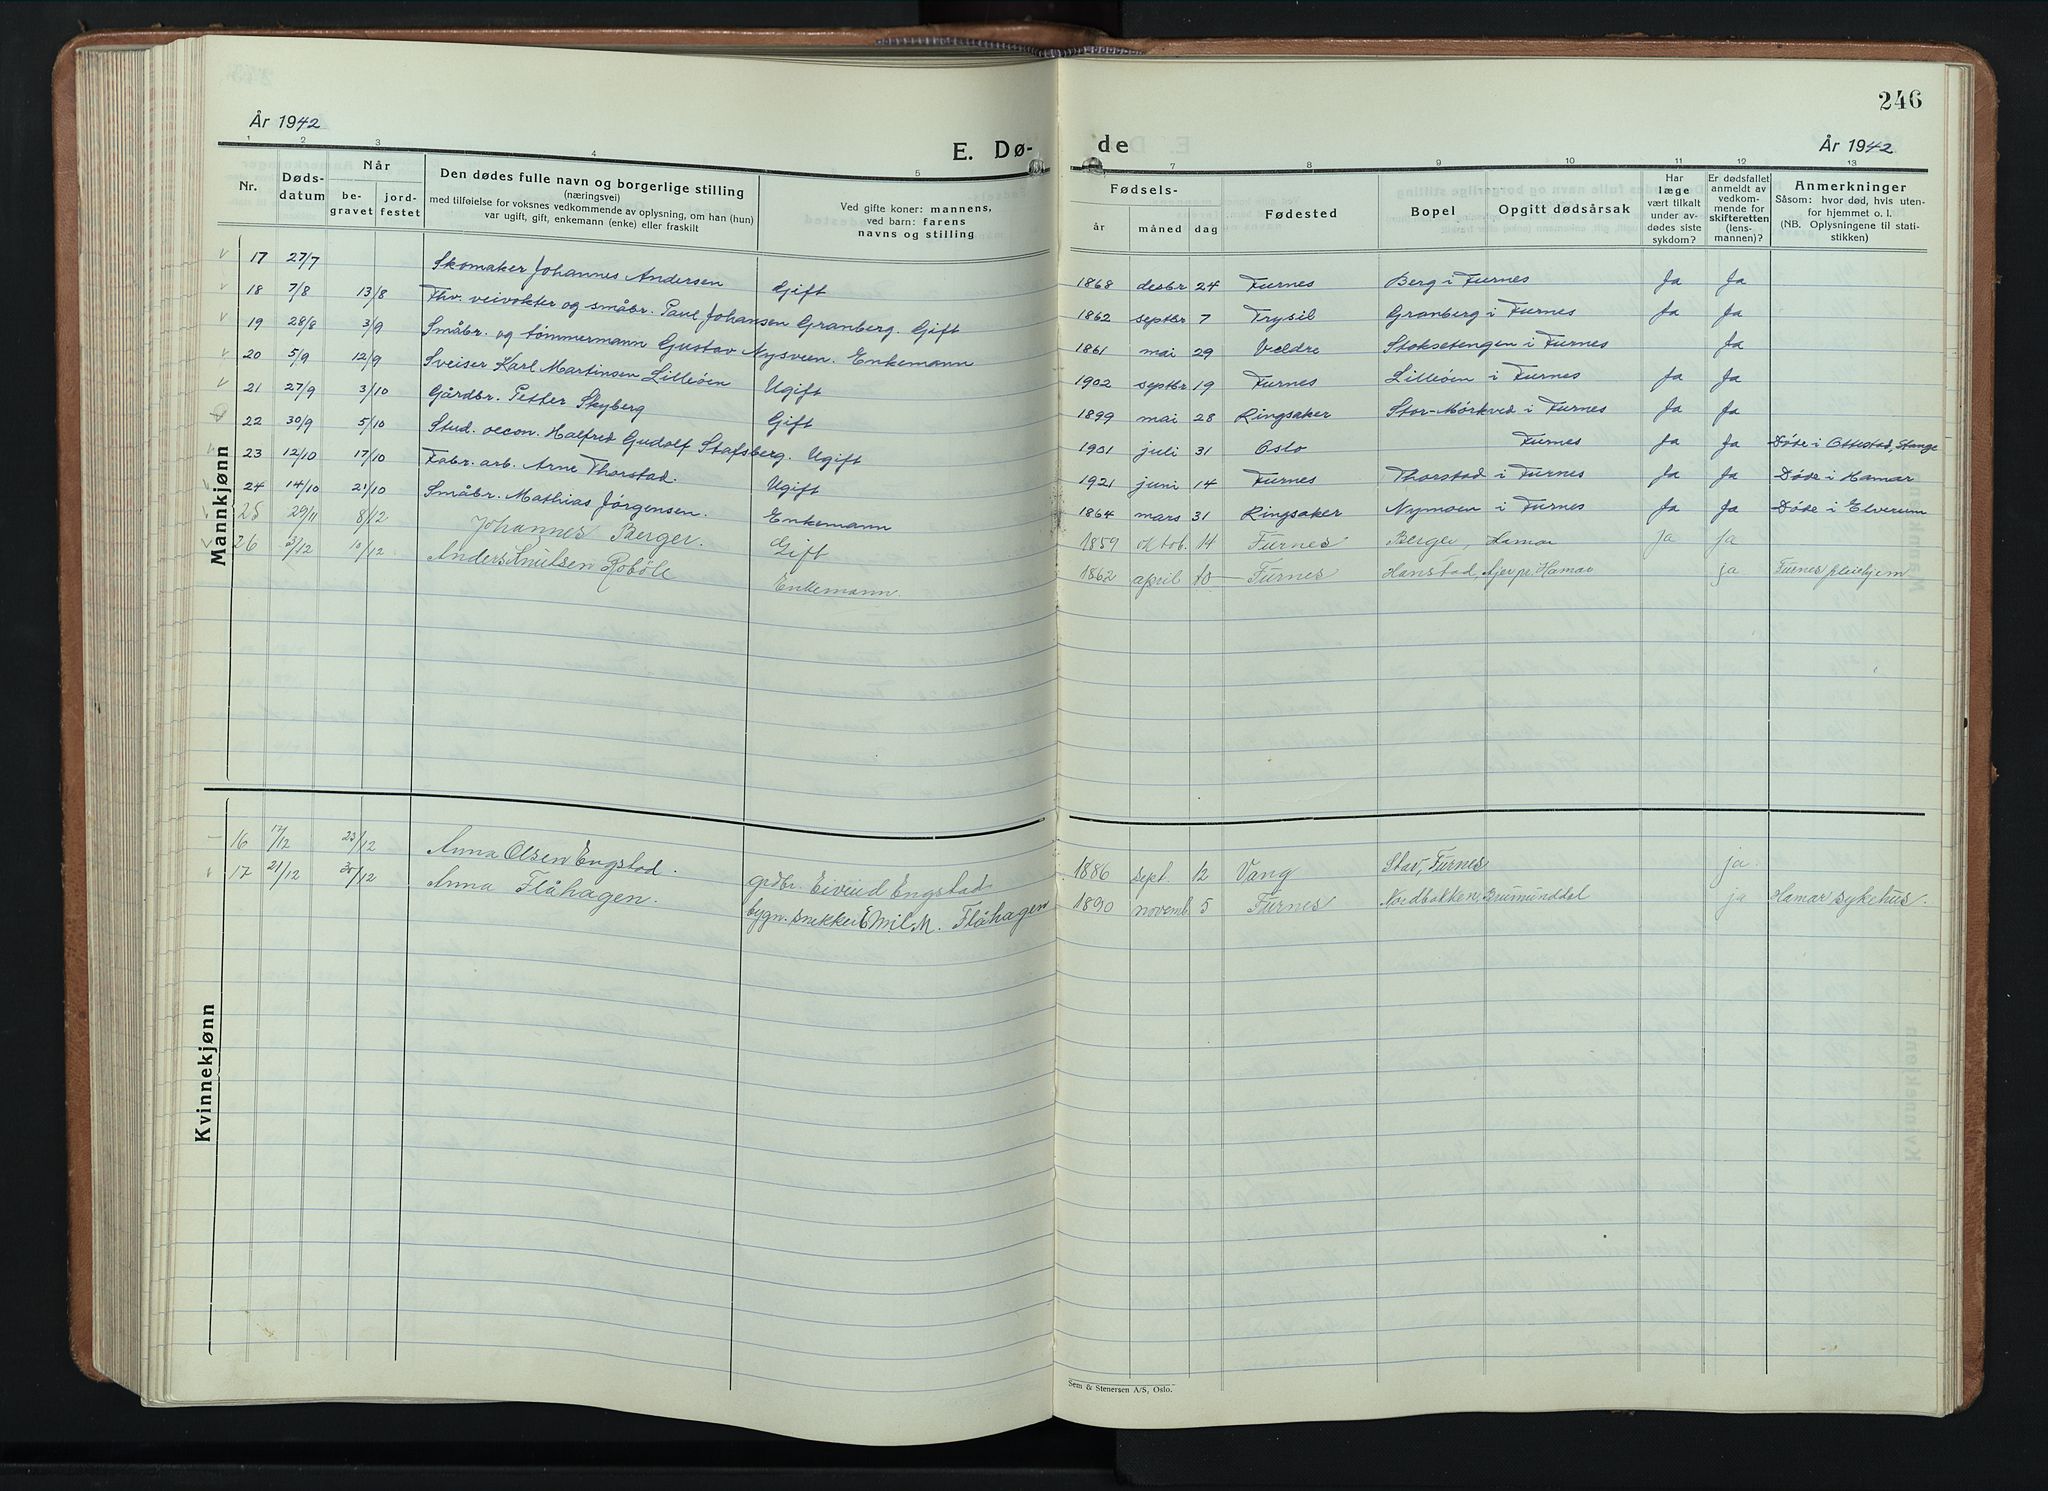 246
År 1942
E. Dø-
de
År 1942
1 2 3 4 5 7 8 9 10 11 12 13
Nr.
Døds-
datum
Når
be-
gravet
jord-
festet
Den dødes fulle navn og borgerlige stilling
(næringsvei)
med tilføielse for voksnes vedkommende av oplysning, om han (hun)
var ugift, gift, enkemann (enke) eller fraskilt
Ved gifte koner: mannens,
ved barn: farens
navns og stilling
Fødsels-
år måned dag
Fødested
Bopel
Opgitt dødsårsak
Har
læge
vært tilkalt
under av-
dødes siste
sykdom?
Er dødsfallet
anmeldt av
vedkom-
mende for
skifteretten
(lens-
mannen)?
Anmerkninger
Såsom: hvor død, hvis uten-
for hjemmet o. l.
(NB. Oplysningene til stati-
stikken)
Mannkjønn
17 27/7 Skomaker Johannes Andersen Gift 1868 desbr 24 Furnes Berg i Furnes Ja Ja
18 7/8 13/8 Fhv. veivokter og småbr. Paul Johansen Granberg. Gift 1862 septbr 7 Trysil Granberg i Furnes Ja Ja
19 28/8 3/9 Småbr. og tømmermann Gustav Nysveen. Enkemann 1861 mai 29 Veldre Stoksetengen i Furnes Ja
20 5/9 12/9 Sveiser Karl Martinsen Lilleøen Ugift 1902 septbr 19 Furnes Lilleøen i Furnes Ja Ja
21 27/9 3/10 Gårdbr. Petter Skyberg Gift 1899 mai 28 Ringsaker Stor-Mørkved i Furnes Ja Ja
22 30/9 5/10 Stud. oecon. Halfred Gudolf Stafsberg. Ugift 1901 juli 31 Oslo Furnes Ja Ja Døde i Ottestad, Stange
23 12/10 17/10 Fabr. arb. Arne Thorstad. Ugift 1921 juni 14 Furnes Thorstad i Furnes Ja Ja Døde i Hamar
24 14/10 21/10 Småbr. Mathias Jørgensen. Enkemann 1864 mars 31 Ringsaker Nymoen i Furnes Ja Ja Døde i Elverum
25 29/11 8/12 Johannes Berger. Gift 1859 oktob. 14 Furnes Berger, Hamar ja ja
26 3/12 10/12 Anders Knutsen Robøle Enkemann. 1862 april 10 Furnes Hanstad, Ajer pr. Hamar ja Furnes pleiehjem
Kvinnekjønn
16 17/12 23/12 Anna Olsen Engstad. grdbr. Eivind Engstad 1886 sept. 12 Vang Stav, Furnes ja.
17 21/12 30/12 Anna Flåhagen. bygn. snekker Emil M. Flåhagen 1890 novemb. 5 Furnes Nordbakken, Brumunddal ja Hamar sykehus.
Sem & Stenersen A/S, Oslo.